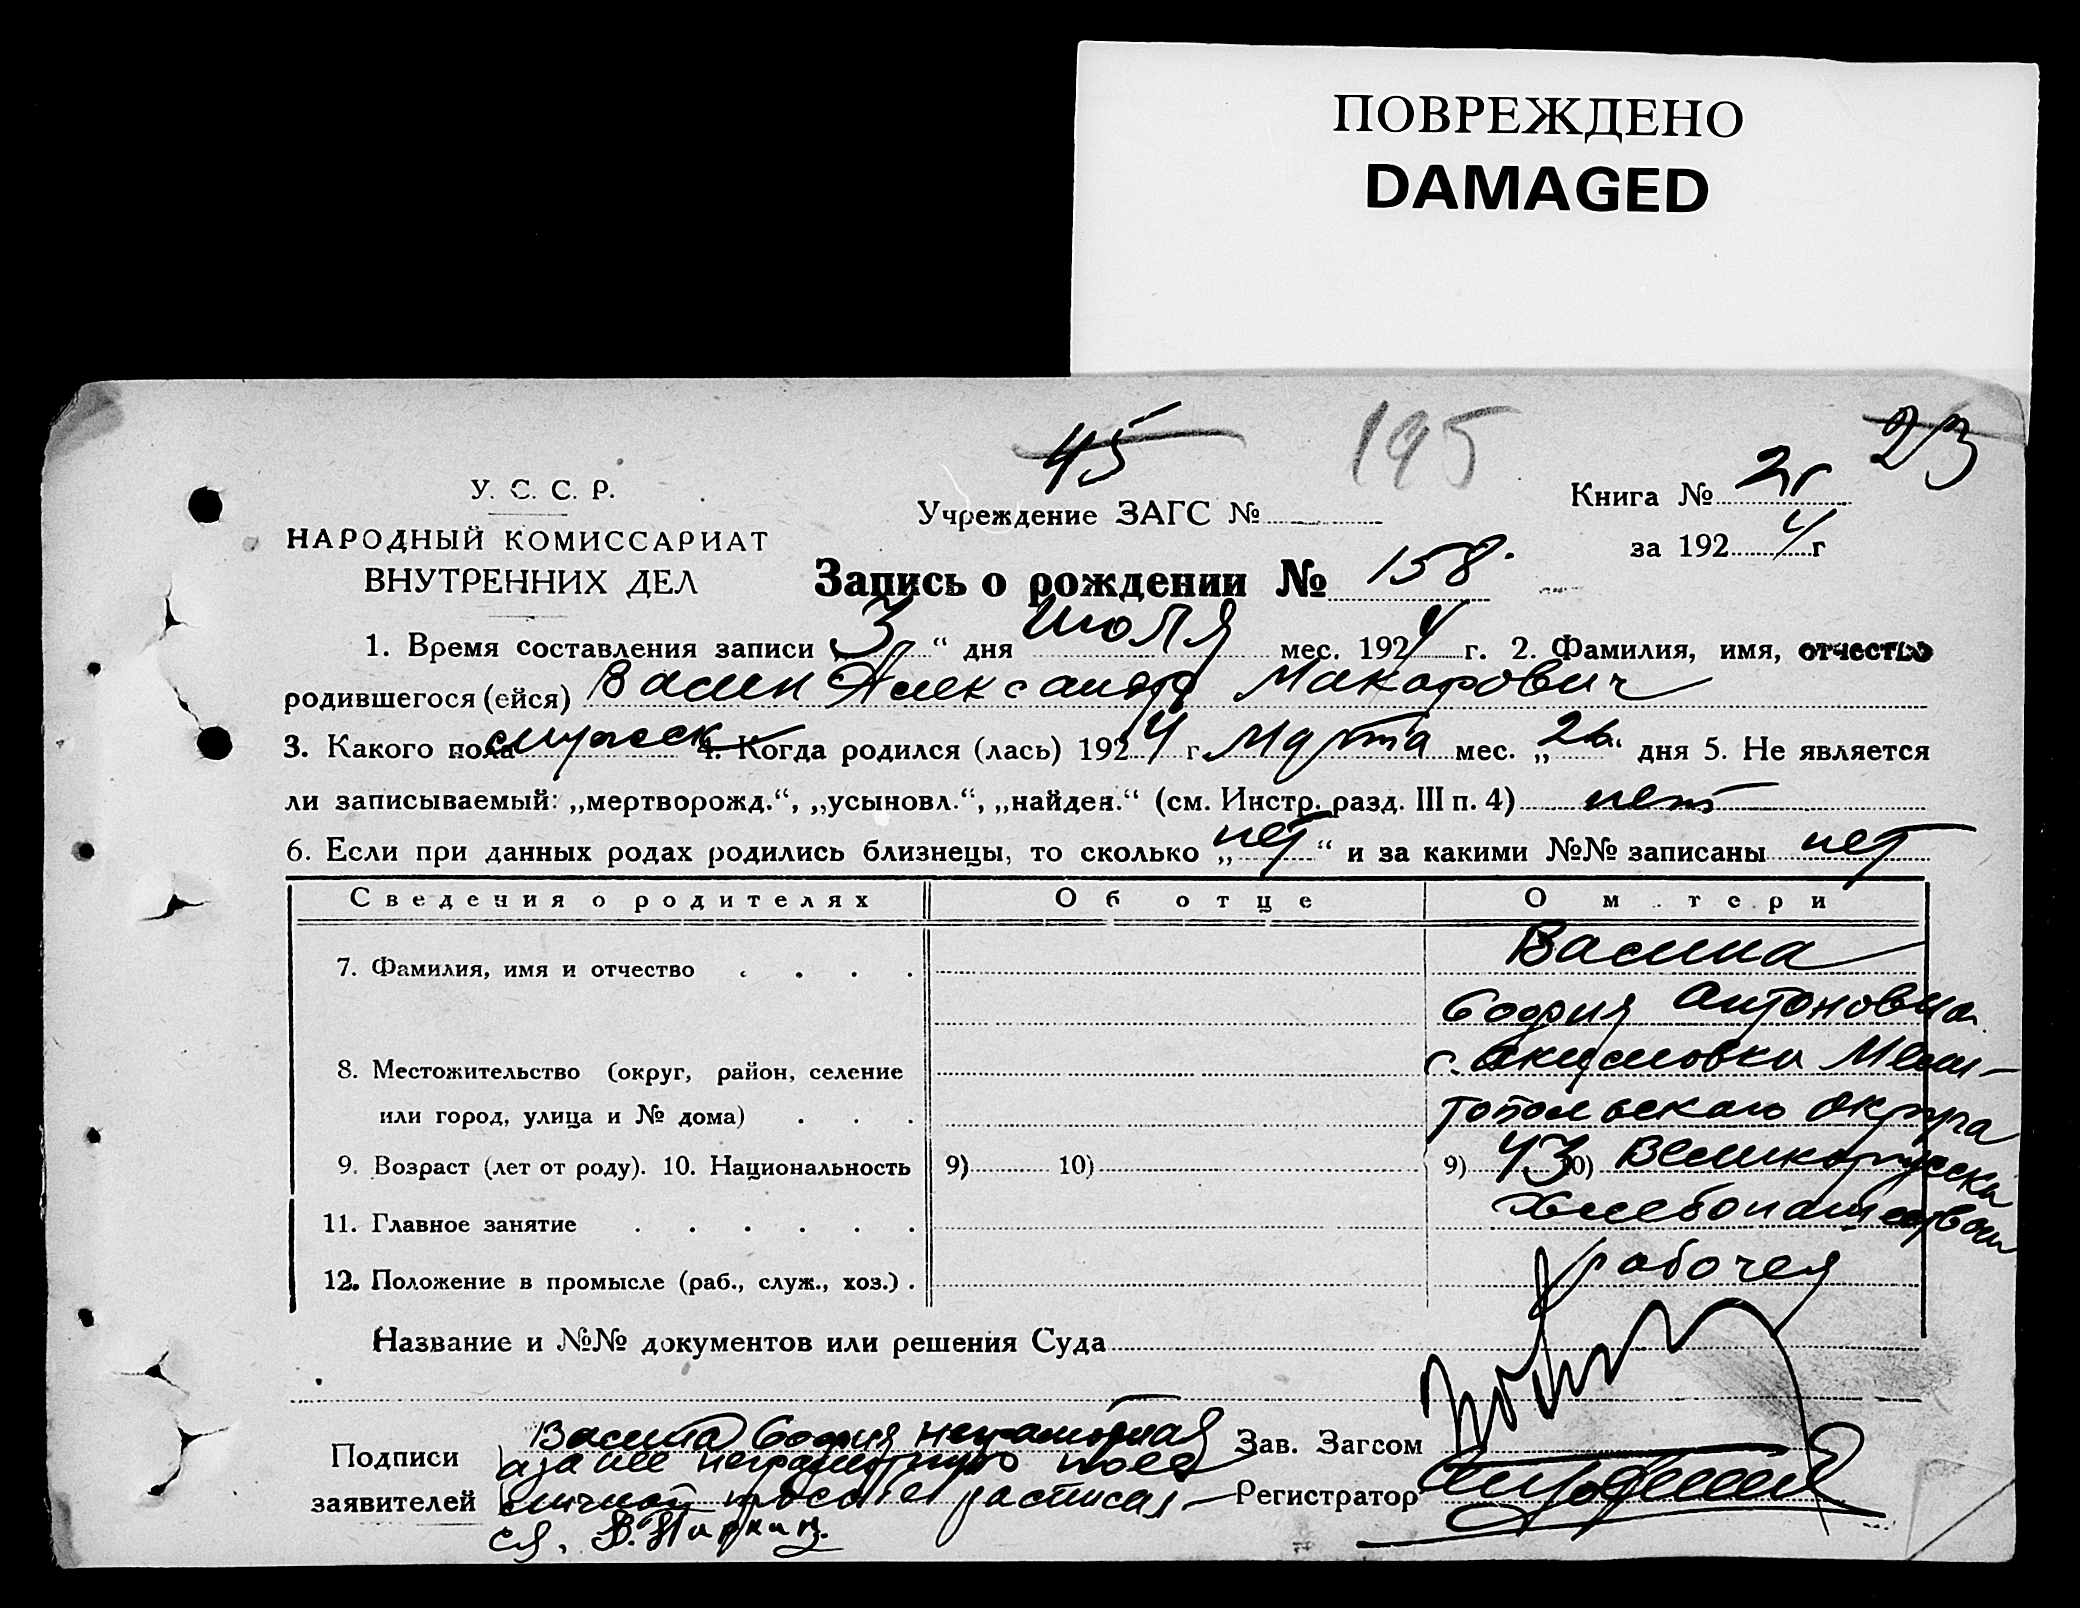 ПОВРЕЖДЕНО
DAMAGED
45 195 23
У. С. С. Р.
НАРОДНЫЙ КОМИССАРИАТ
ВНУТРЕННИХ ДЕЛ
Учреждение ЗАГС №
Книга № 2г
за 1924 г
Запись о рождении № 158.
1. Время составления записи „3“ дня Июля мес. 1924 г. 2. Фамилия, имя, отчество
родившегося (ейся) Васин Александр Макарович
3. Какого пола мужеск 4. Когда родился (лась) 1924 г. Марта мес. „26“ дня 5. Не является
ли записываемый: „мертворожд.“, „усыновл.“, „найден.“ (см. Инстр. разд. III п. 4) нет
6. Если при данных родах родились близнецы, то сколько „нет“ и за какими №№ записаны нет
Сведения о родителях Об отце О м тери
7. Фамилия, имя и отчество Васина
София Антоновна
8. Местожительство (округ, район, селение с. Акимовка Мели-
или город, улица и № дома) топольскаго округа
9. Возраст (лет от роду). 10. Национальность 9) 10) 9) 43 10) Великорусска
11. Главное занятие Хлебопашеством
12. Положение в промысле (раб., служ., хоз.) рабочей
Название и №№ документов или решения Суда
Подписи Васина София неграмотная Зав. Загсом
а за нее неграмотную по ее
заявителей личной просьбе расписал- Регистратор
ся.